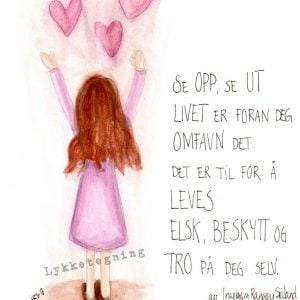 SE OPP, SE UT
LIVET ER FORAN DEG
OMFAVN DET.
DET ER TIL FOR Å
LEVES
ELSK, BESKYTT OG
TRO PÅ DEG SELV.
Lykketegning
av